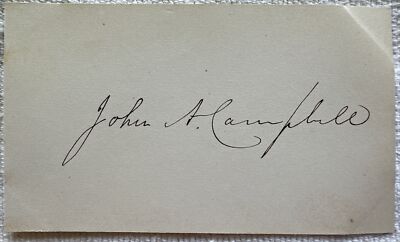 John A. Campbell